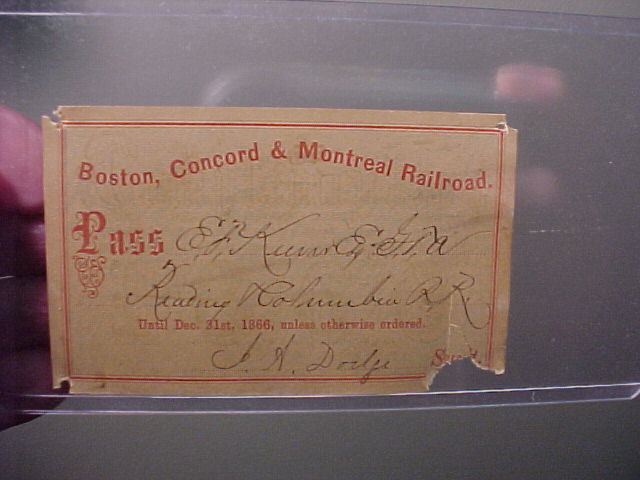 Boston, Concord & Montreal Railroad.
Pass E. F. Keever Esq G.T.A
Reading & Columbia R.R.
Until Dec. 31st, 1866, unless otherwise ordered.
J. A. Dodge Sup't.